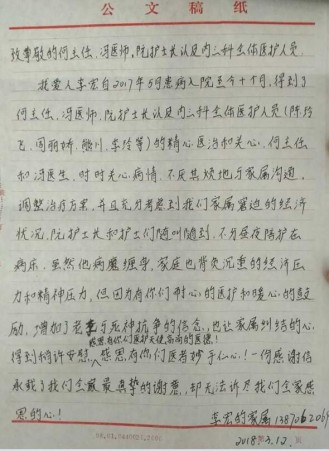 公文稿纸
致尊敬的何主任、冯医师、阮护士长以及内二科全体医护人员
我爱人李宏自2017年5月患病入院至今十个月,得到了
何主任、冯医师、阮护士长以及内二科全体医护人员(陈玲
飞、闻丽娇、李玲等)的精心医治和关心,何主任
和冯医生,时时关心病情,不厌其烦地与家属沟通,
调整治疗方案,并且充分考虑到我们家属窘迫的经济
状况,阮护士长和护士们随叫随到,不分昼夜陪护在
病床,虽然他病魔缠身,家庭也背负沉重的经济压
力和精神压力,但因为有你们耐心的医护和暖心的鼓
励,增加了老李与死神抗争的信念,也让家属纠结的心
感恩有你们医护天使高尚的医德!
得到稍许安慰,感恩有你们医者妙手仁心!一份感谢信
承载了我们全家最真挚的谢意,却无法诉尽我们全家感
恩的心!
李宏的家属
2018.3.12.